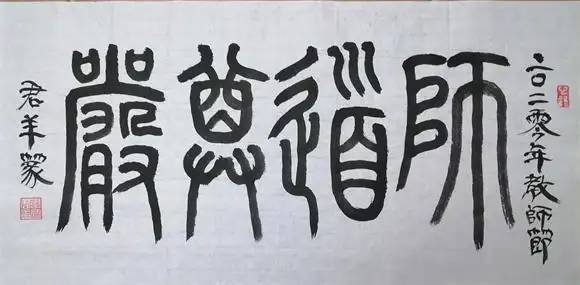 二〇二零年教師節
師道尊嚴
羣篆